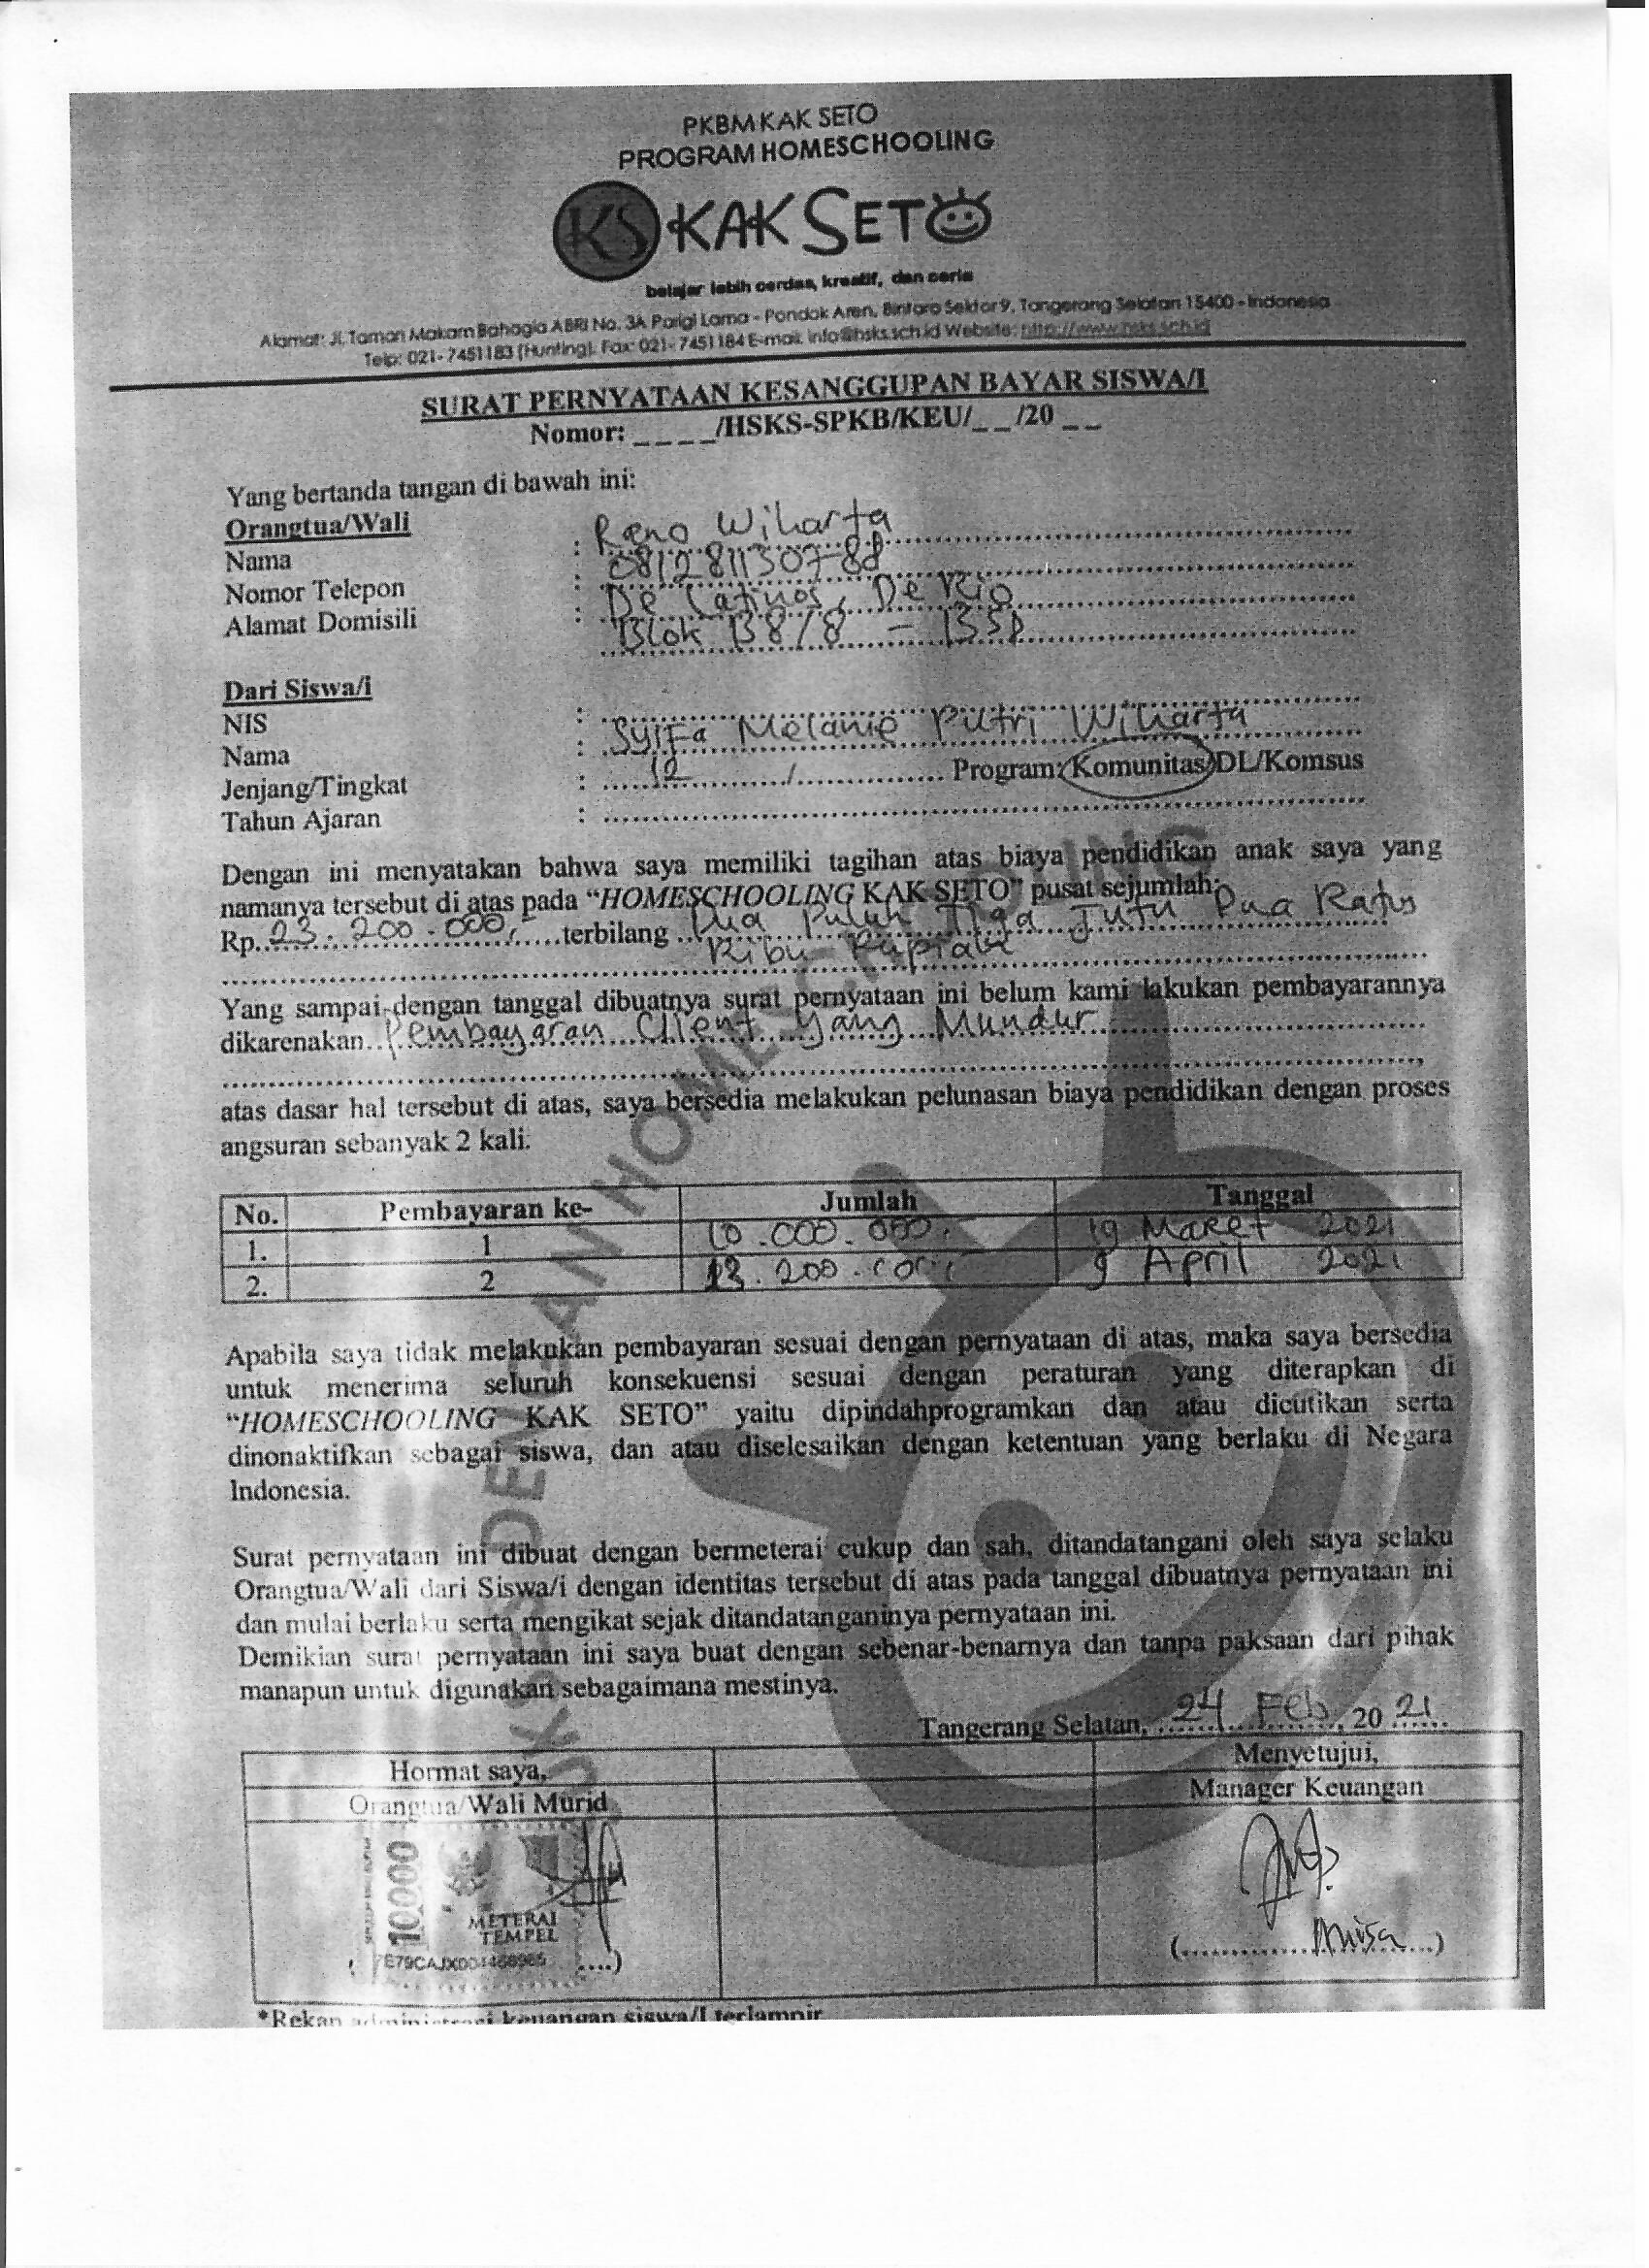 PKBM KAK SETO
PROGRAM HOMESCHOOLING
KS KAK SETO
belajar lebih cerdas, kreatif, dan ceria
Alamat: Jl. Taman Makam Bahagia ABRI No. 3A Parigi Lama - Pondok Aren, Bintaro Sektor 9, Tangerang Selatan 15400 - Indonesia
Telp: 021- 7451183 (Hunting). Fax: 021- 7451184 E-mail: info@hsks.sch.id Website: http://www.hsks.sch.id
SURAT PERNYATAAN KESANGGUPAN BAYAR SISWA/I
Nomor: _ _ _ _/HSKS-SPKB/KEU/_ _ /20 _ _
Yang bertanda tangan di bawah ini:
Orangtua/Wali
Nama : Reno Wiharta
Nomor Telepon : 081281130788
Alamat Domisili : De Latinos, De Rio
Blok B8/8 -
Dari Siswa/i
NIS :
Nama : Syifa Melanie Putri Wiharta
Jenjang/Tingkat : 12 / Program: Komunitas/DL/Komsus
Tahun Ajaran :
Dengan ini menyatakan bahwa saya memiliki tagihan atas biaya pendidikan anak saya yang
namanya tersebut di atas pada “HOMESCHOOLING KAK SETO” pusat sejumlah:
Rp. 23.200.000,- terbilang Dua Puluh Tiga Jutu Dua Ratus
Ribu Rupiah
Yang sampai dengan tanggal dibuatnya surat pernyataan ini belum kami lakukan pembayarannya
dikarenakan Pembayaran Client yang Mundur
,
atas dasar hal tersebut di atas, saya bersedia melakukan pelunasan biaya pendidikan dengan proses
angsuran sebanyak 2 kali:
No. Pembayaran ke- Jumlah Tanggal
1. 1 10.000.000,- 19 Maret 2021
2. 2 13.200.000,- 9 April 2021
Apabila saya tidak melakukan pembayaran sesuai dengan pernyataan di atas, maka saya bersedia
untuk menerima seluruh konsekuensi sesuai dengan peraturan yang diterapkan di
“HOMESCHOOLING KAK SETO” yaitu dipindahprogramkan dan atau dicutikan serta
dinonaktifkan sebagai siswa, dan atau diselesaikan dengan ketentuan yang berlaku di Negara
Indonesia.
Surat pernyataan ini dibuat dengan bermeterai cukup dan sah, ditandatangani oleh saya selaku
Orangtua/Wali dari Siswa/i dengan identitas tersebut di atas pada tanggal dibuatnya pernyataan ini
dan mulai berlaku serta mengikat sejak ditandatanganinya pernyataan ini.
Demikian surat pernyataan ini saya buat dengan sebenar-benarnya dan tanpa paksaan dari pihak
manapun untuk digunakan sebagaimana mestinya.
Tangerang Selatan, 24 Feb, 20 21
Hormat saya, Menyetujui,
Orangtua/Wali Murid Manager Keuangan
10000
METERAI
TEMPEL
(....) (Anisa)
*Rekap administrasi keuangan siswa/I terlampir